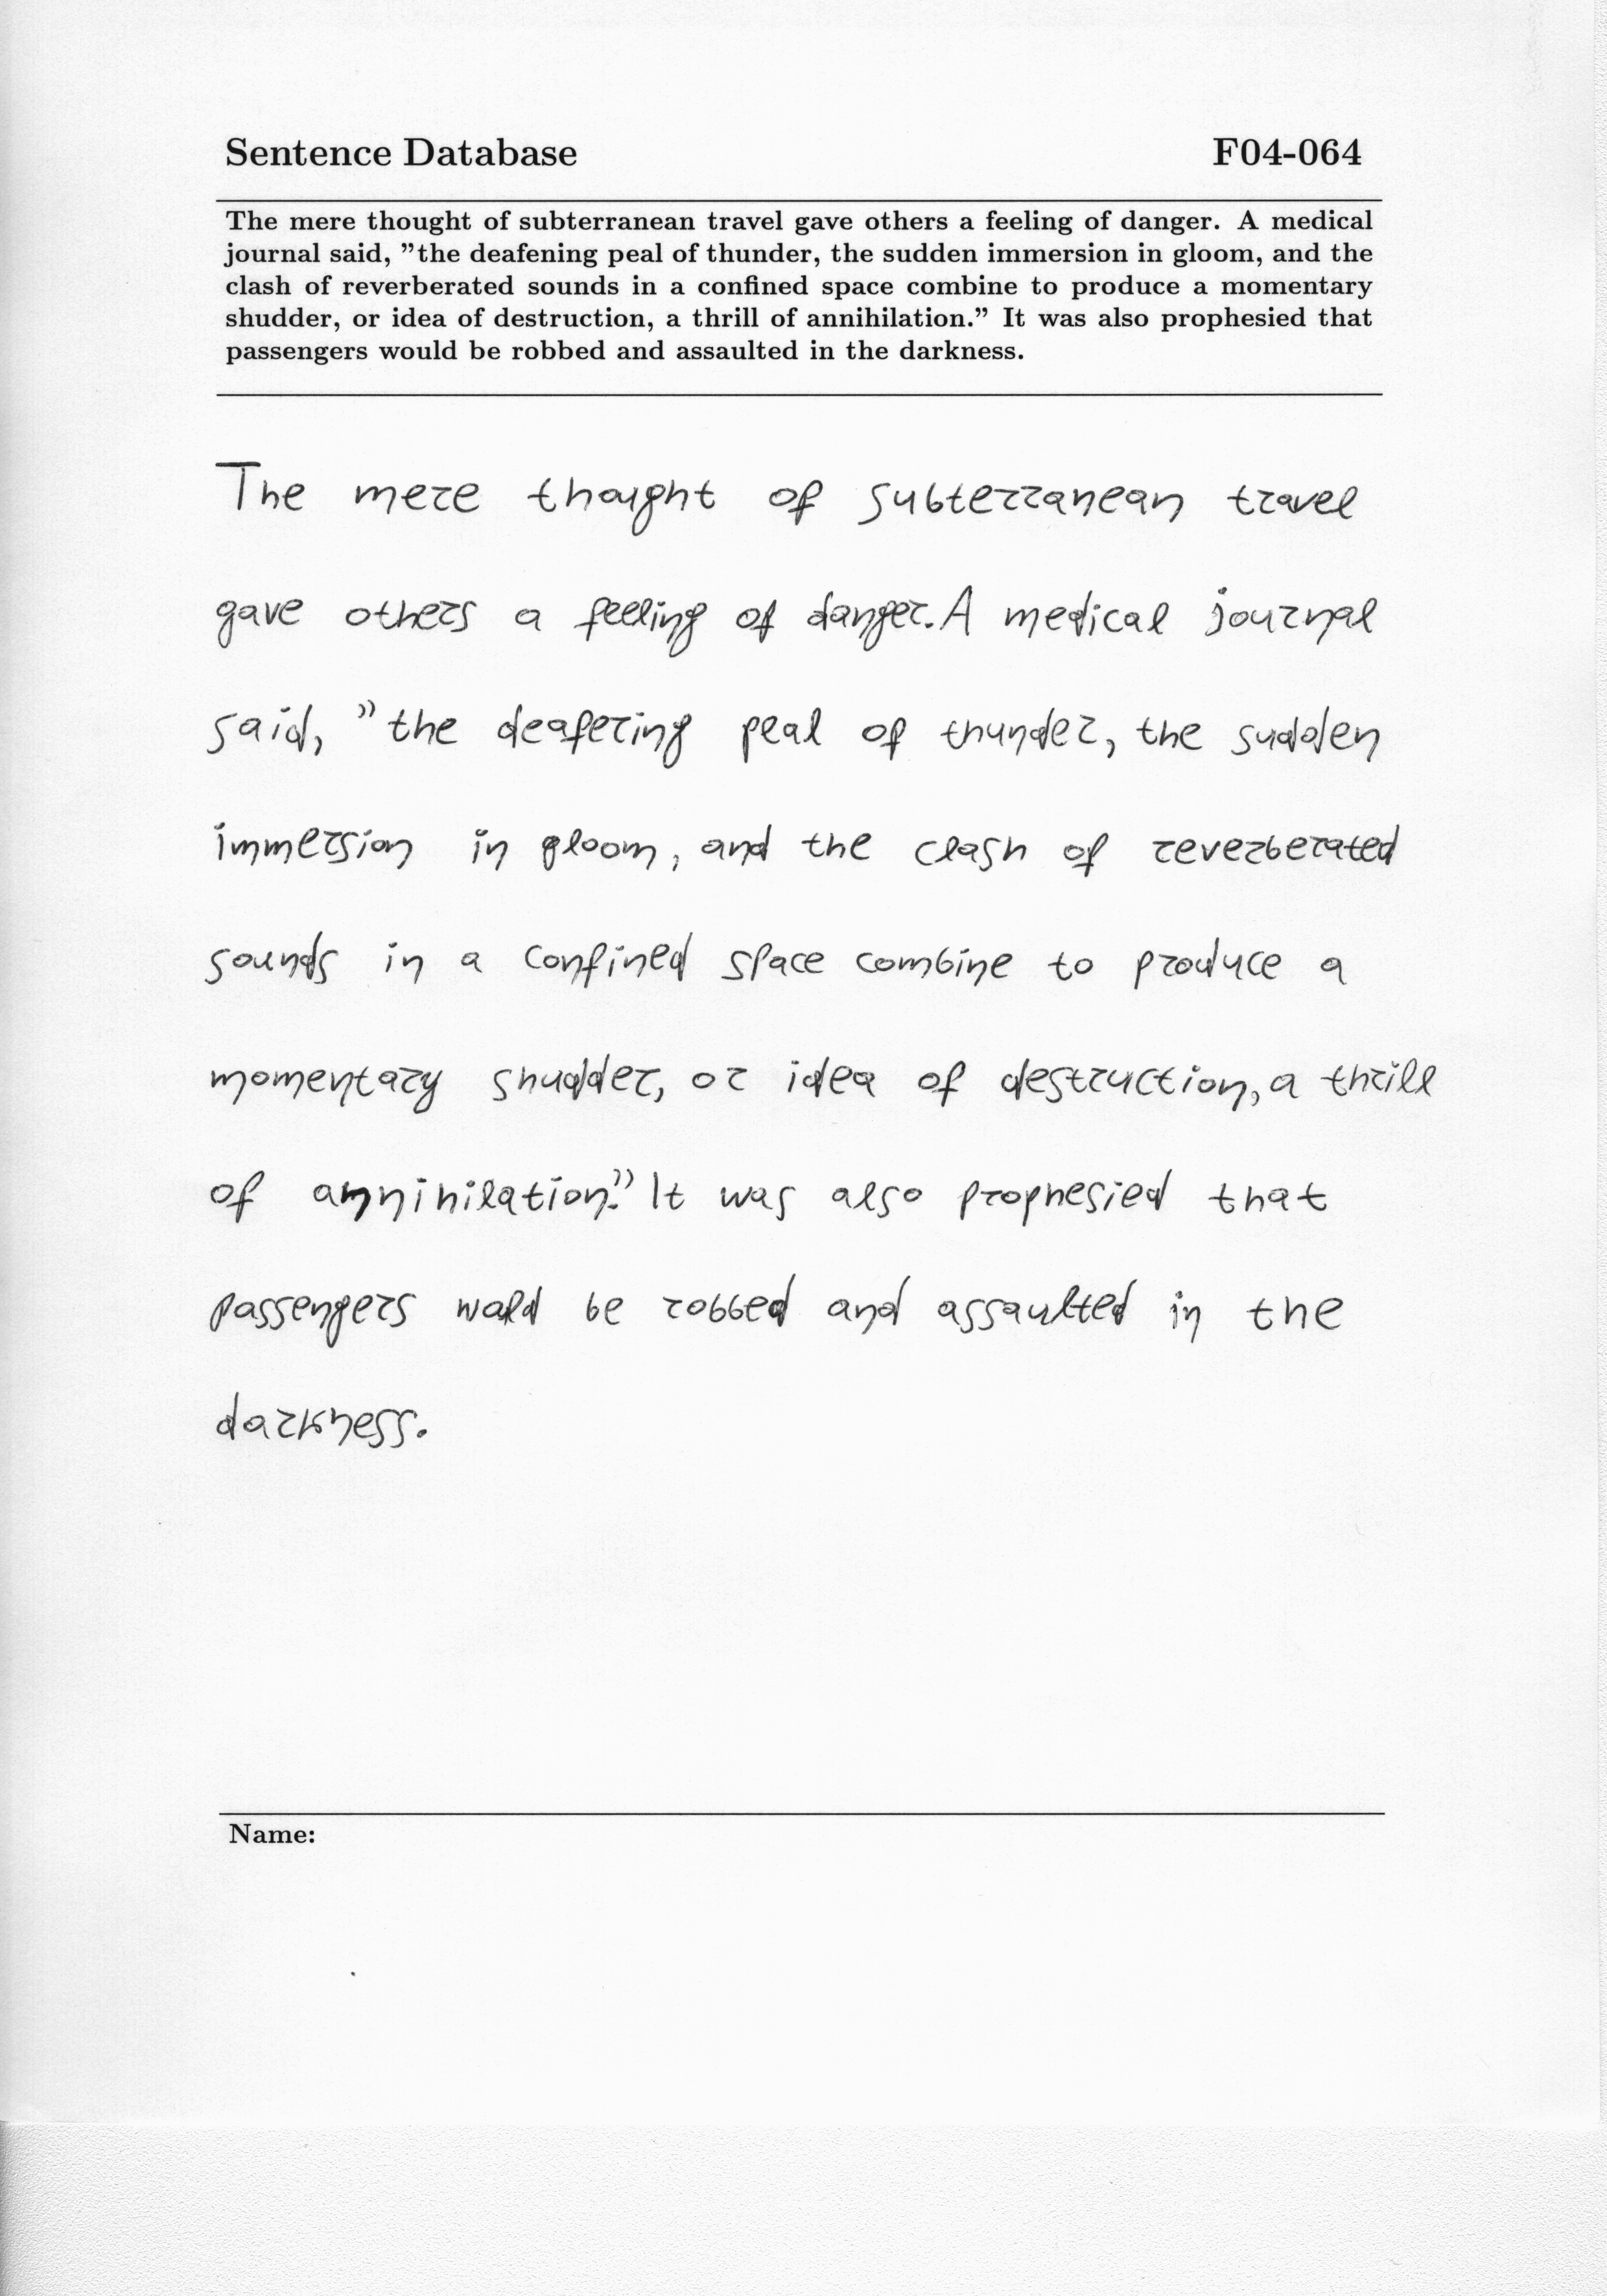 Sentence Database F04-064
The mere thought of subterranean travel gave others a feeling of danger. A medical
journal said, ”the deafening peal of thunder, the sudden immersion in gloom, and the
clash of reverberated sounds in a confined space combine to produce a momentary
shudder, or idea of destruction, a thrill of annihilation.” It was also prophesied that
passengers would be robbed and assaulted in the darkness.
The mere thought of subterranean travel
gave others a feeling of danger. A medical journal
said, ”the deafering peal of thunder, the sudden
immersion in gloom, and the clash of reverberated
sounds in a confined space combine to produce a
momentary shudder, or idea of destruction, a thrill
of annihilation.” It was also prophesied that
passengers would be robbed and assaulted in the
darkness.
Name: